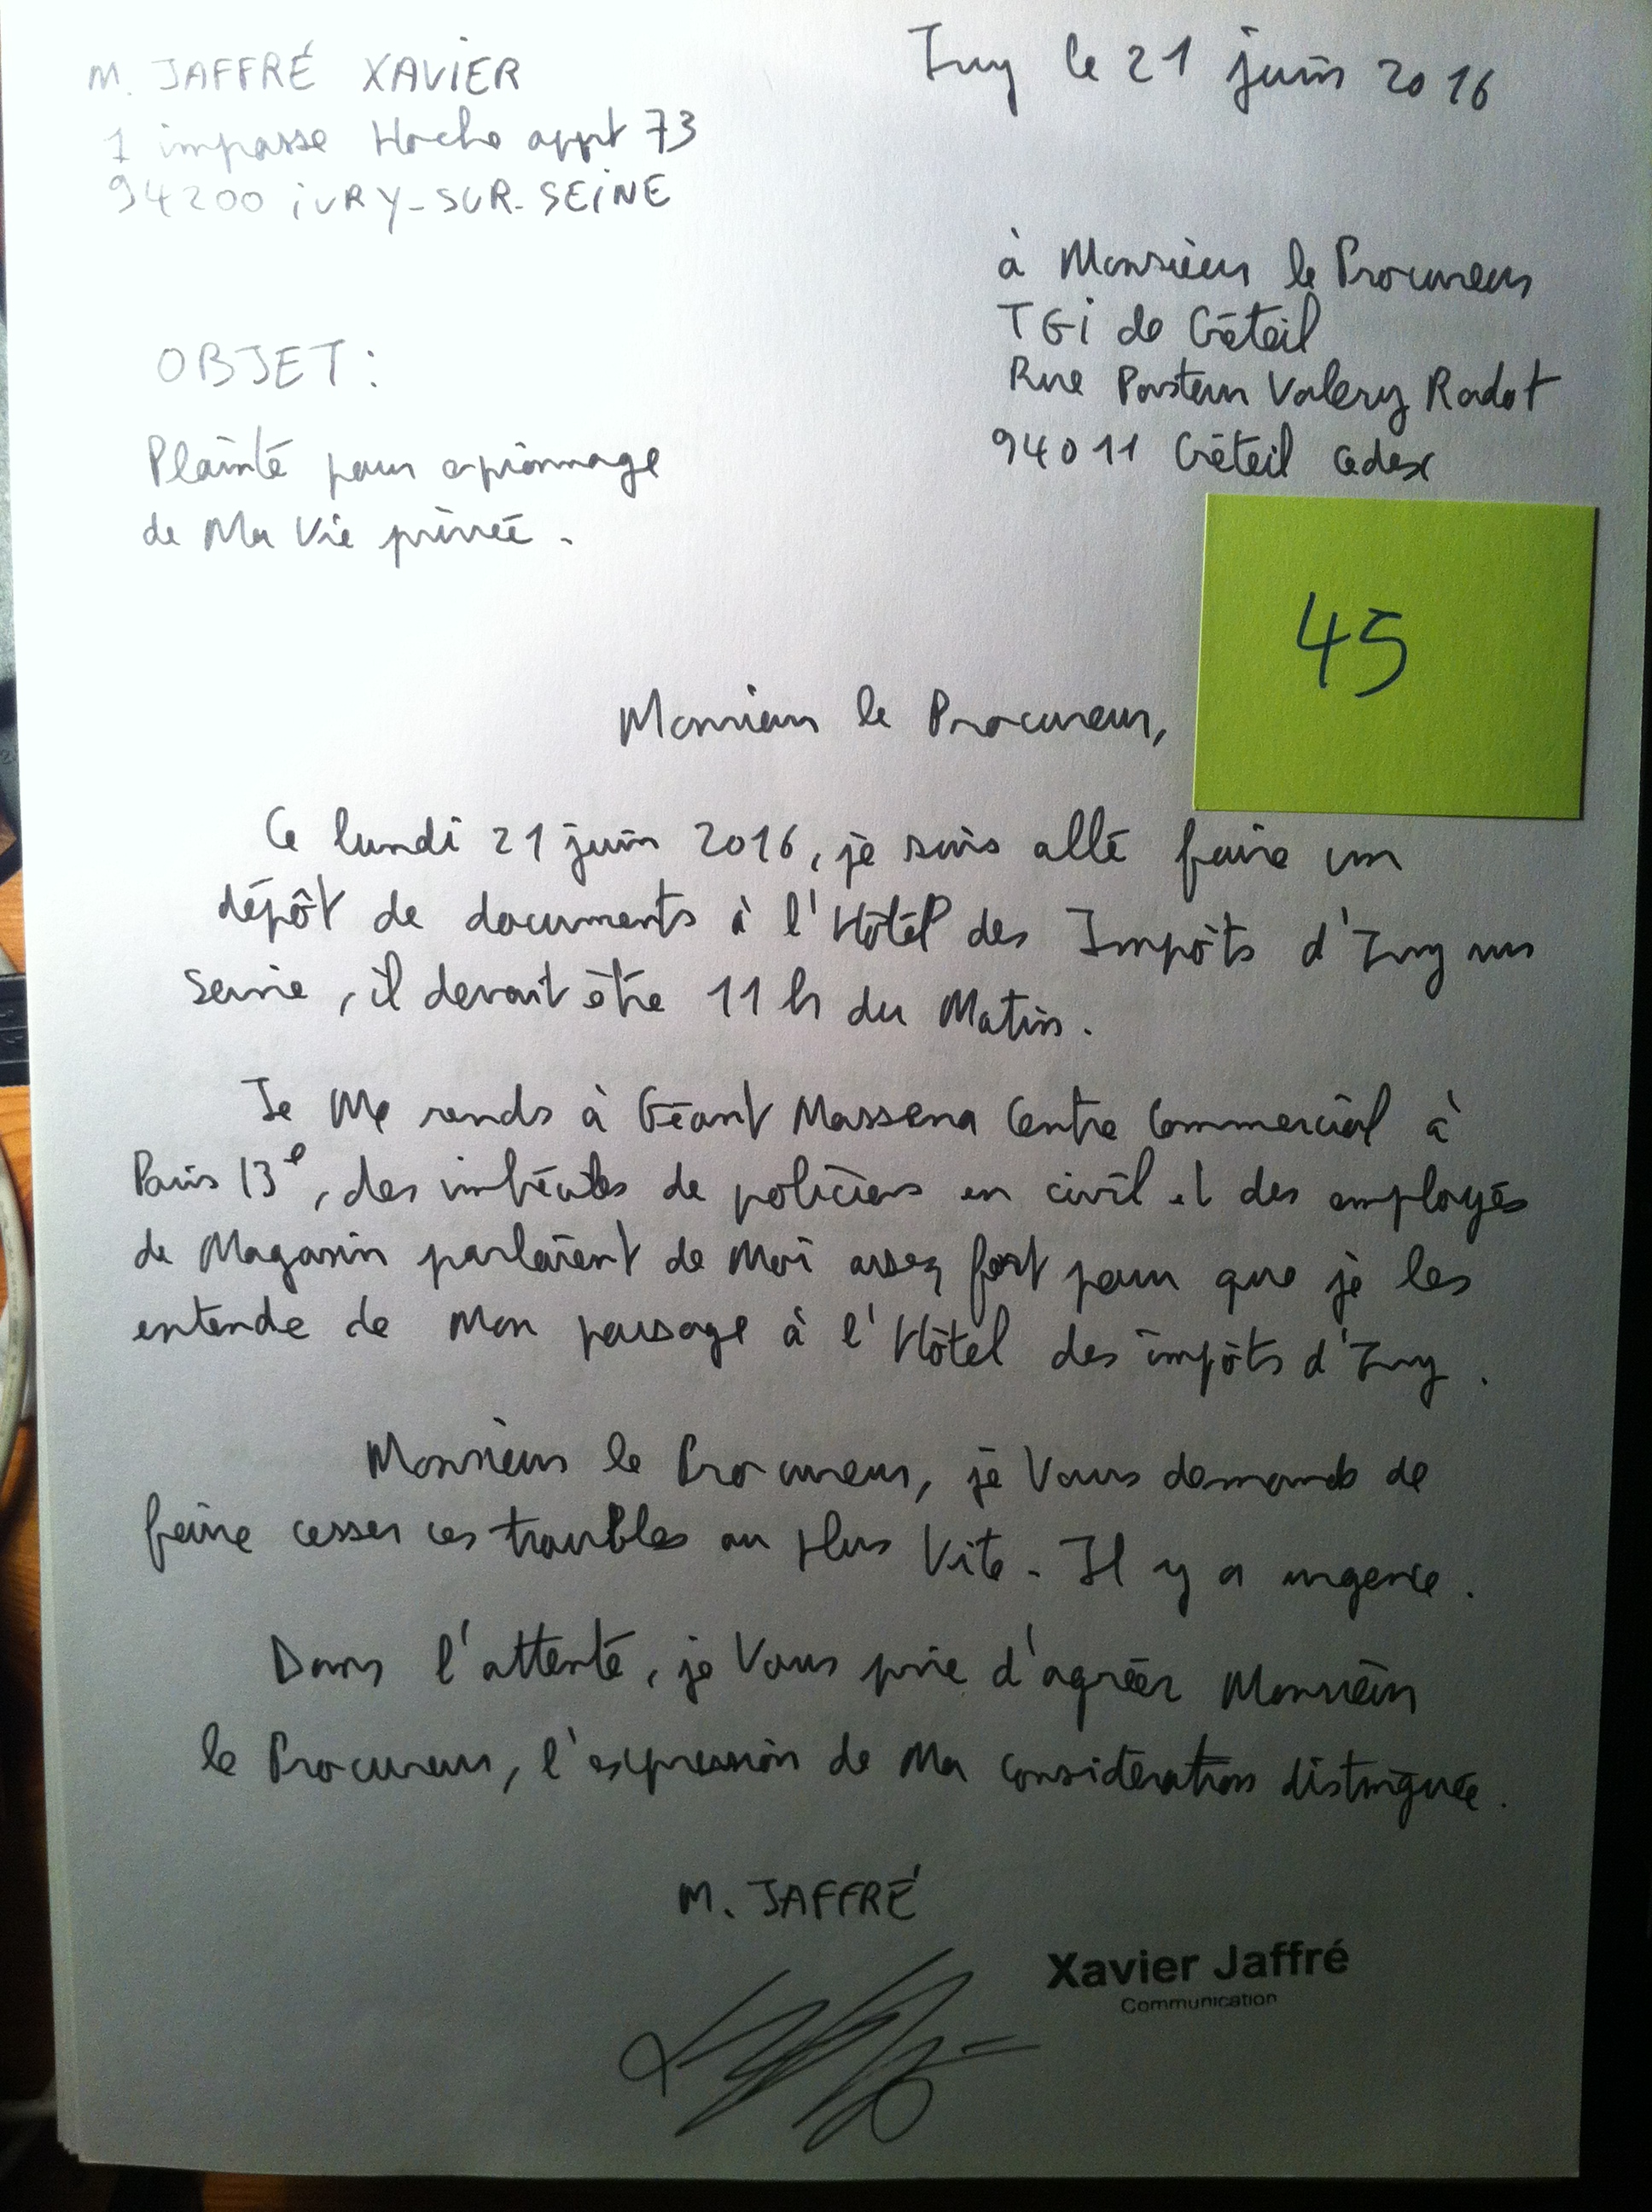 M. JAFFRÉ XAVIER
1 impasse Hoche appt 73
94200 iVRY-SUR-SEiNE
Ivry le 21 juin 2016
à Monsieur le Procureur
TGi de Créteil
Rue Pasteur Valery Radot
94011 Créteil cedex
OBJET:
Plainte pour espionnage
de Ma Vie privée.
45
Monsieur le Procureur,
Ce lundi 21 juin 2016, je suis allé faire un
dépôt de documents à l'Hôtel des Impôts d'Ivry sur
Seine, il devait être 11 h du Matin.
Je Me rends à Géant Massena Centre Commercial à
Paris 13e, des imbéciles de policiers en civil et des employés
de Magasin parlaient de Moi assez fort pour que je les
entende de Mon passage à l'Hôtel des impôts d'Ivry.
Monsieur le Procureur, je Vous demande de
faire cesser ces troubles au plus Vite. Il y a urgence.
Dans l'attente, je Vous prie d'agréer Monsieur
le Procureur, l'expression de Ma Considération distinguée.
M. JAFFRÉ
Xavier Jaffré
Communication